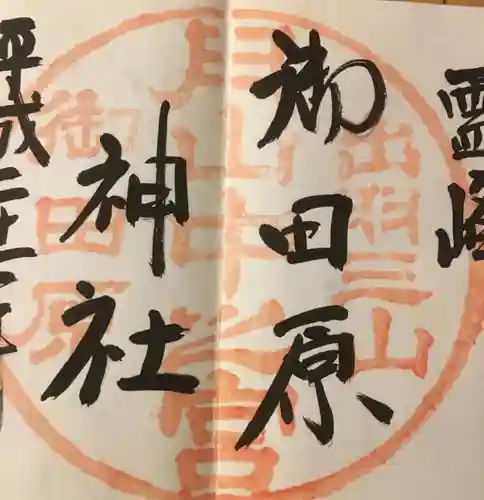 霊峰
御田原
神社
出羽三山
月山中之宮
御田原